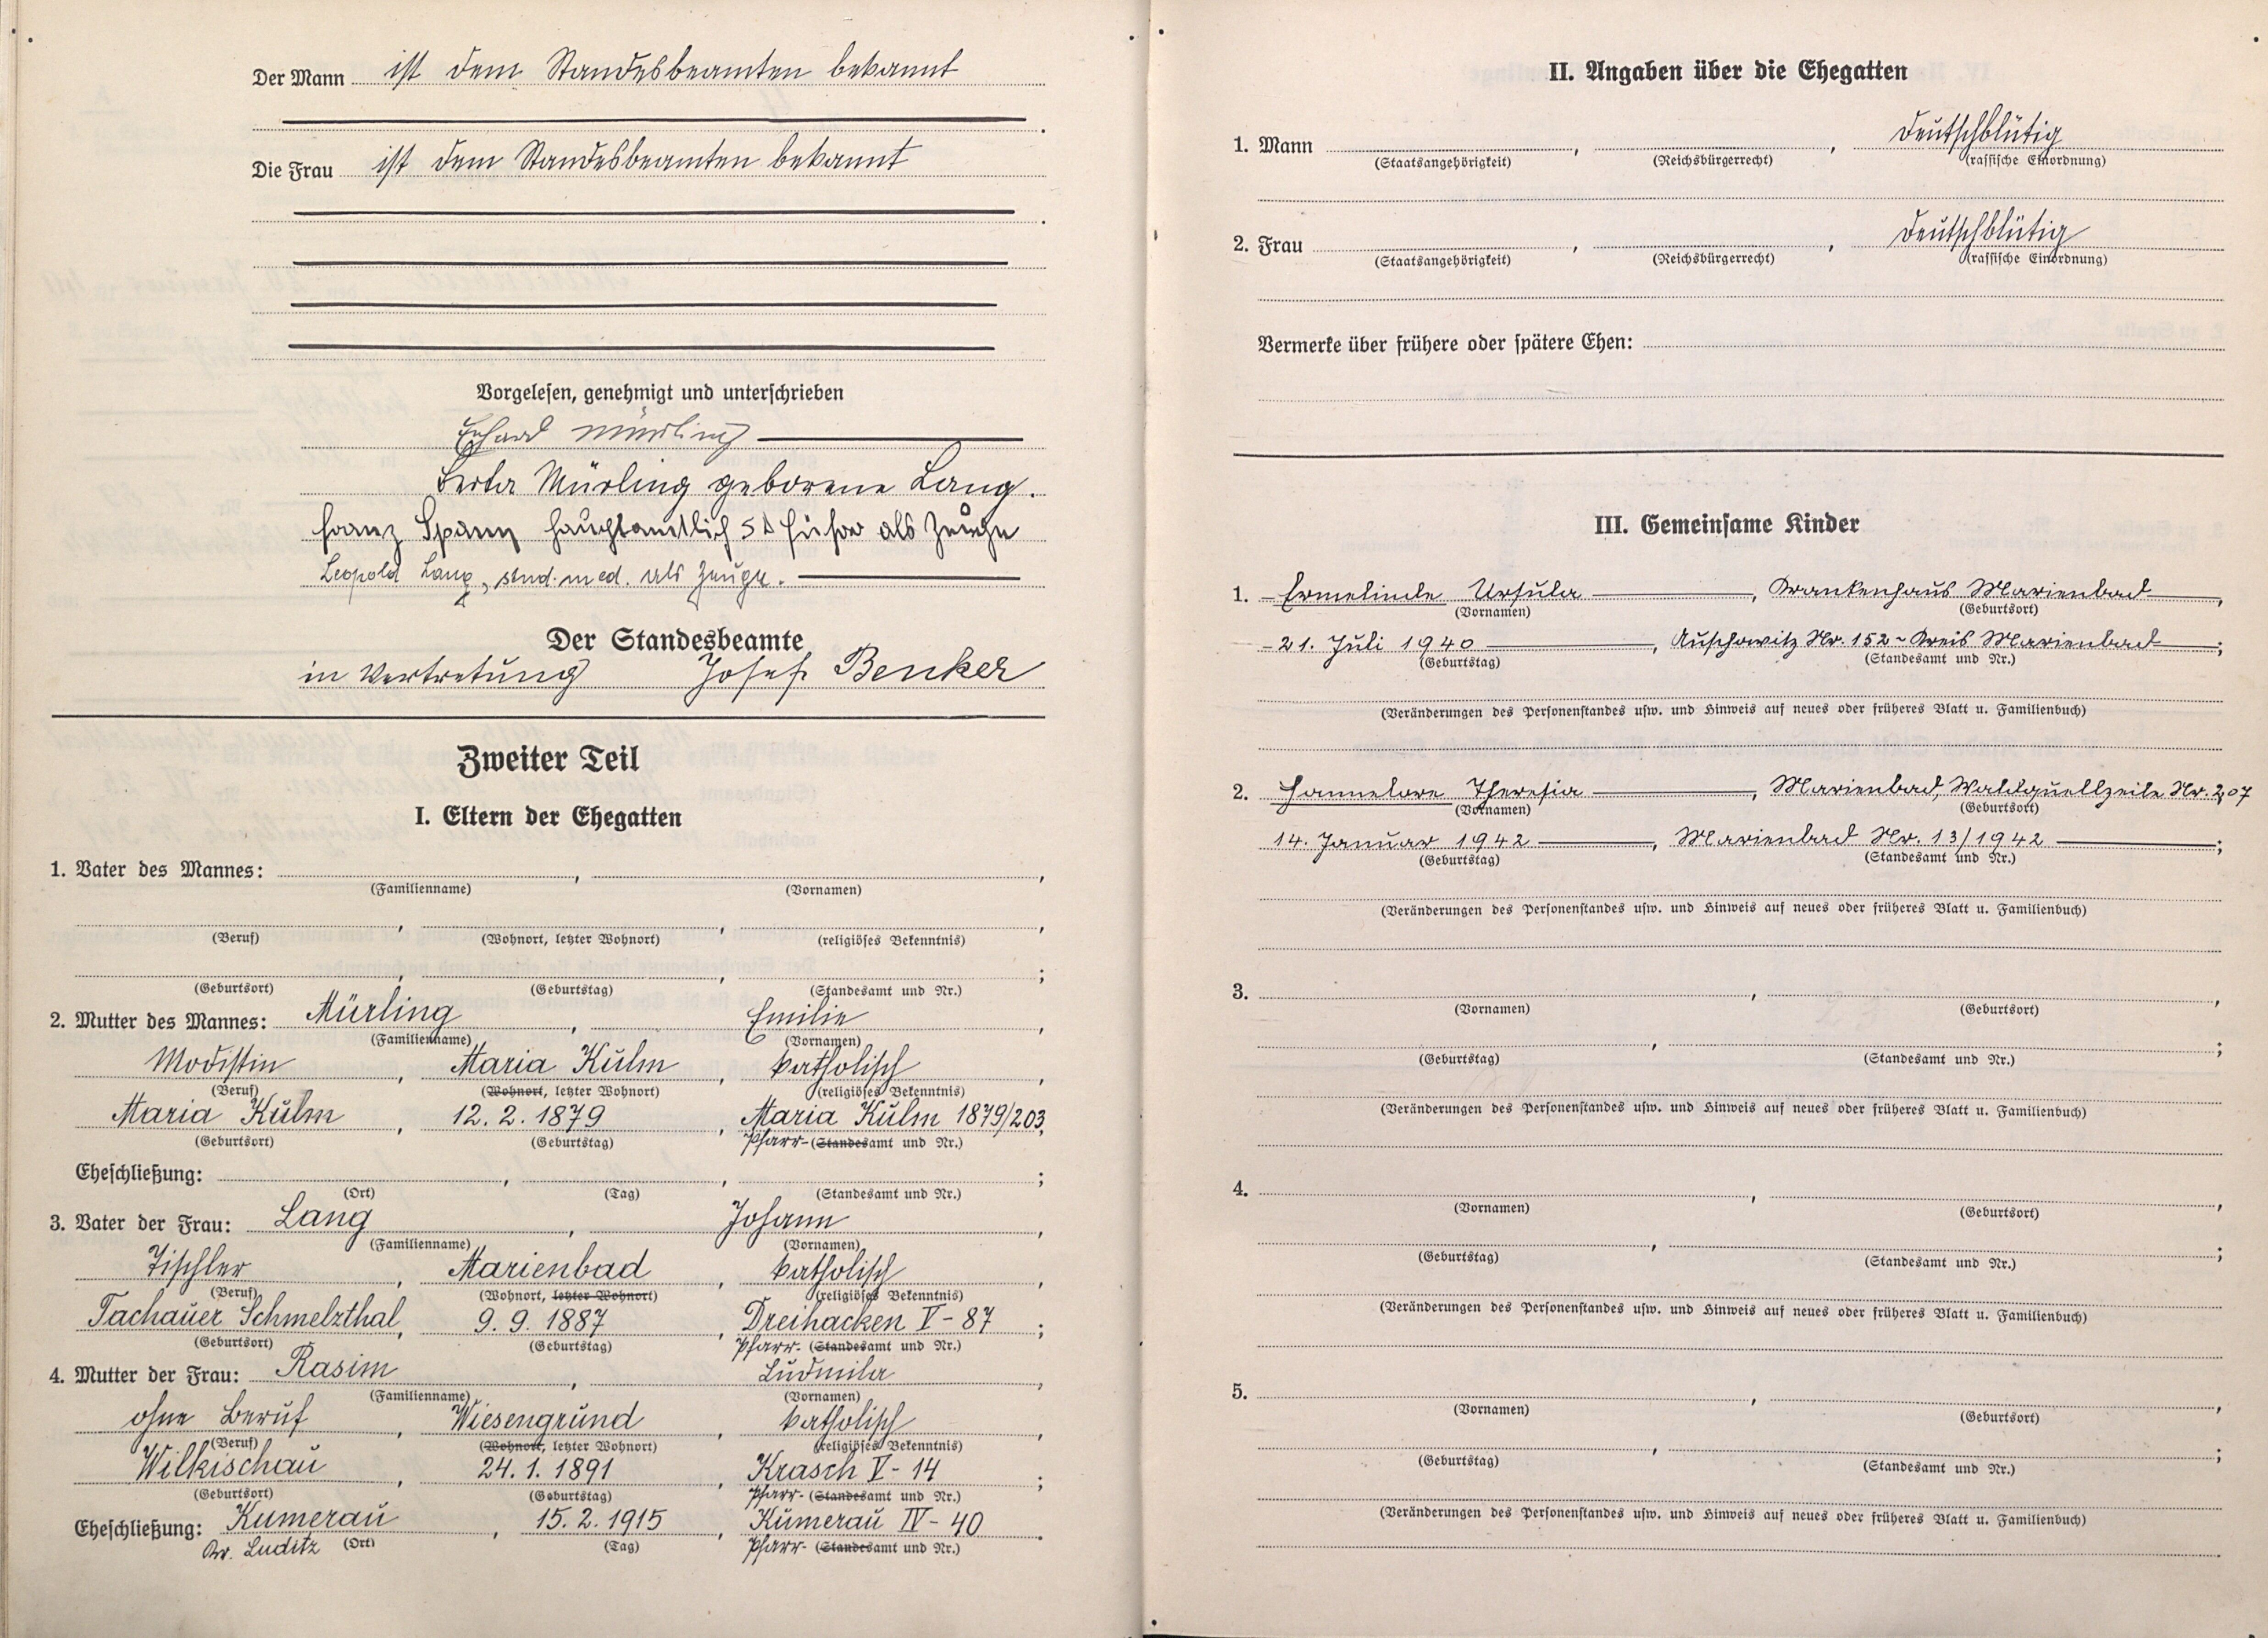 Der Mann ist dem Standesbeamten bekannt
Die Frau ist dem Standesbeamten bekannt
Vorgelesen, genehmigt und unterschrieben
Erhard Mürling
Berta Mürling geborene Lang.
Franz Spann hauptamtlich SA Führer als Zeuge
Leopold Lang, stud. med. als Zeuge.
Der Standesbeamte
in Vertretung Josef Benker
Zweiter Teil
I. Eltern der Ehegatten
1. Vater des Mannes: , ,
(Familienname) (Vornamen)
, , ,
(Beruf) (Wohnort, letzter Wohnort) (religiöses Bekenntnis)
, , ;
(Geburtsort) (Geburtstag) (Standesamt und Nr.)
2. Mutter des Mannes: Mürling , Emilie ,
(Familienname) (Vornamen)
Modistin , Maria Kulm , katholisch ,
(Beruf) (Wohnort, letzter Wohnort) (religiöses Bekenntnis)
Maria Kulm , 12. 2. 1879 , Maria Kulm 1879/203,
(Geburtsort) (Geburtstag) Pfarr- (Standesamt und Nr.)
Eheschließung: , , ;
(Ort) (Tag) (Standesamt und Nr.)
3. Vater der Frau: Lang , Johann ,
(Familienname) (Vornamen)
Tischler , Marienbad , katholisch ,
(Beruf) (Wohnort, letzter Wohnort) (religiöses Bekenntnis)
Tachauer Schmelzthal , 9. 9. 1887 , Dreihacken V - 87 ;
(Geburtsort) (Geburtstag) Pfarr- (Standesamt und Nr.)
4. Mutter der Frau: Rasim , Ludmila ,
(Familienname) (Vornamen)
ohne Beruf , Wiesengrund , katholisch ,
(Beruf) (Wohnort, letzter Wohnort) (religiöses Bekenntnis)
Wilkischau , 24. 1. 1891 , Krasch V - 14 ;
(Geburtsort) (Geburtstag) Pfarr- (Standesamt und Nr.)
Eheschließung: Kumerau , 15. 2. 1915 , Kumerau IV - 40 .
Kr. Luditz (Ort) (Tag) Pfarr- (Standesamt und Nr.)
II. Angaben über die Ehegatten
1. Mann , , Deutschblütig
(Staatsangehörigkeit) (Reichsbürgerrecht) (rassische Einordnung)
2. Frau , , Deutschblütig
(Staatsangehörigkeit) (Reichsbürgerrecht) (rassische Einordnung)
Vermerke über frühere oder spätere Ehen:
III. Gemeinsame Kinder
1. Ermelinde Ursula , Krankenhaus Marienbad ,
(Vornamen) (Geburtsort)
21. Juli 1940 , Auschowitz Nr. 152 - Kreis Marienbad ;
(Geburtstag) (Standesamt und Nr.)
(Veränderungen des Personenstandes usw. und Hinweis auf neues oder früheres Blatt u. Familienbuch)
2. Hannelore Theresia , Marienbad, Waldquellzeile Nr. 207
(Vornamen) (Geburtsort)
14. Januar 1942 , Marienbad Nr. 13/1942 ;
(Geburtstag) (Standesamt und Nr.)
(Veränderungen des Personenstandes usw. und Hinweis auf neues oder früheres Blatt u. Familienbuch)
3. , ,
(Vornamen) (Geburtsort)
, ;
(Geburtstag) (Standesamt und Nr.)
(Veränderungen des Personenstandes usw. und Hinweis auf neues oder früheres Blatt u. Familienbuch)
4. , ,
(Vornamen) (Geburtsort)
, ;
(Geburtstag) (Standesamt und Nr.)
(Veränderungen des Personenstandes usw. und Hinweis auf neues oder früheres Blatt u. Familienbuch)
5. , ,
(Vornamen) (Geburtsort)
, ;
(Geburtstag) (Standesamt und Nr.)
(Veränderungen des Personenstandes usw. und Hinweis auf neues oder früheres Blatt u. Familienbuch)